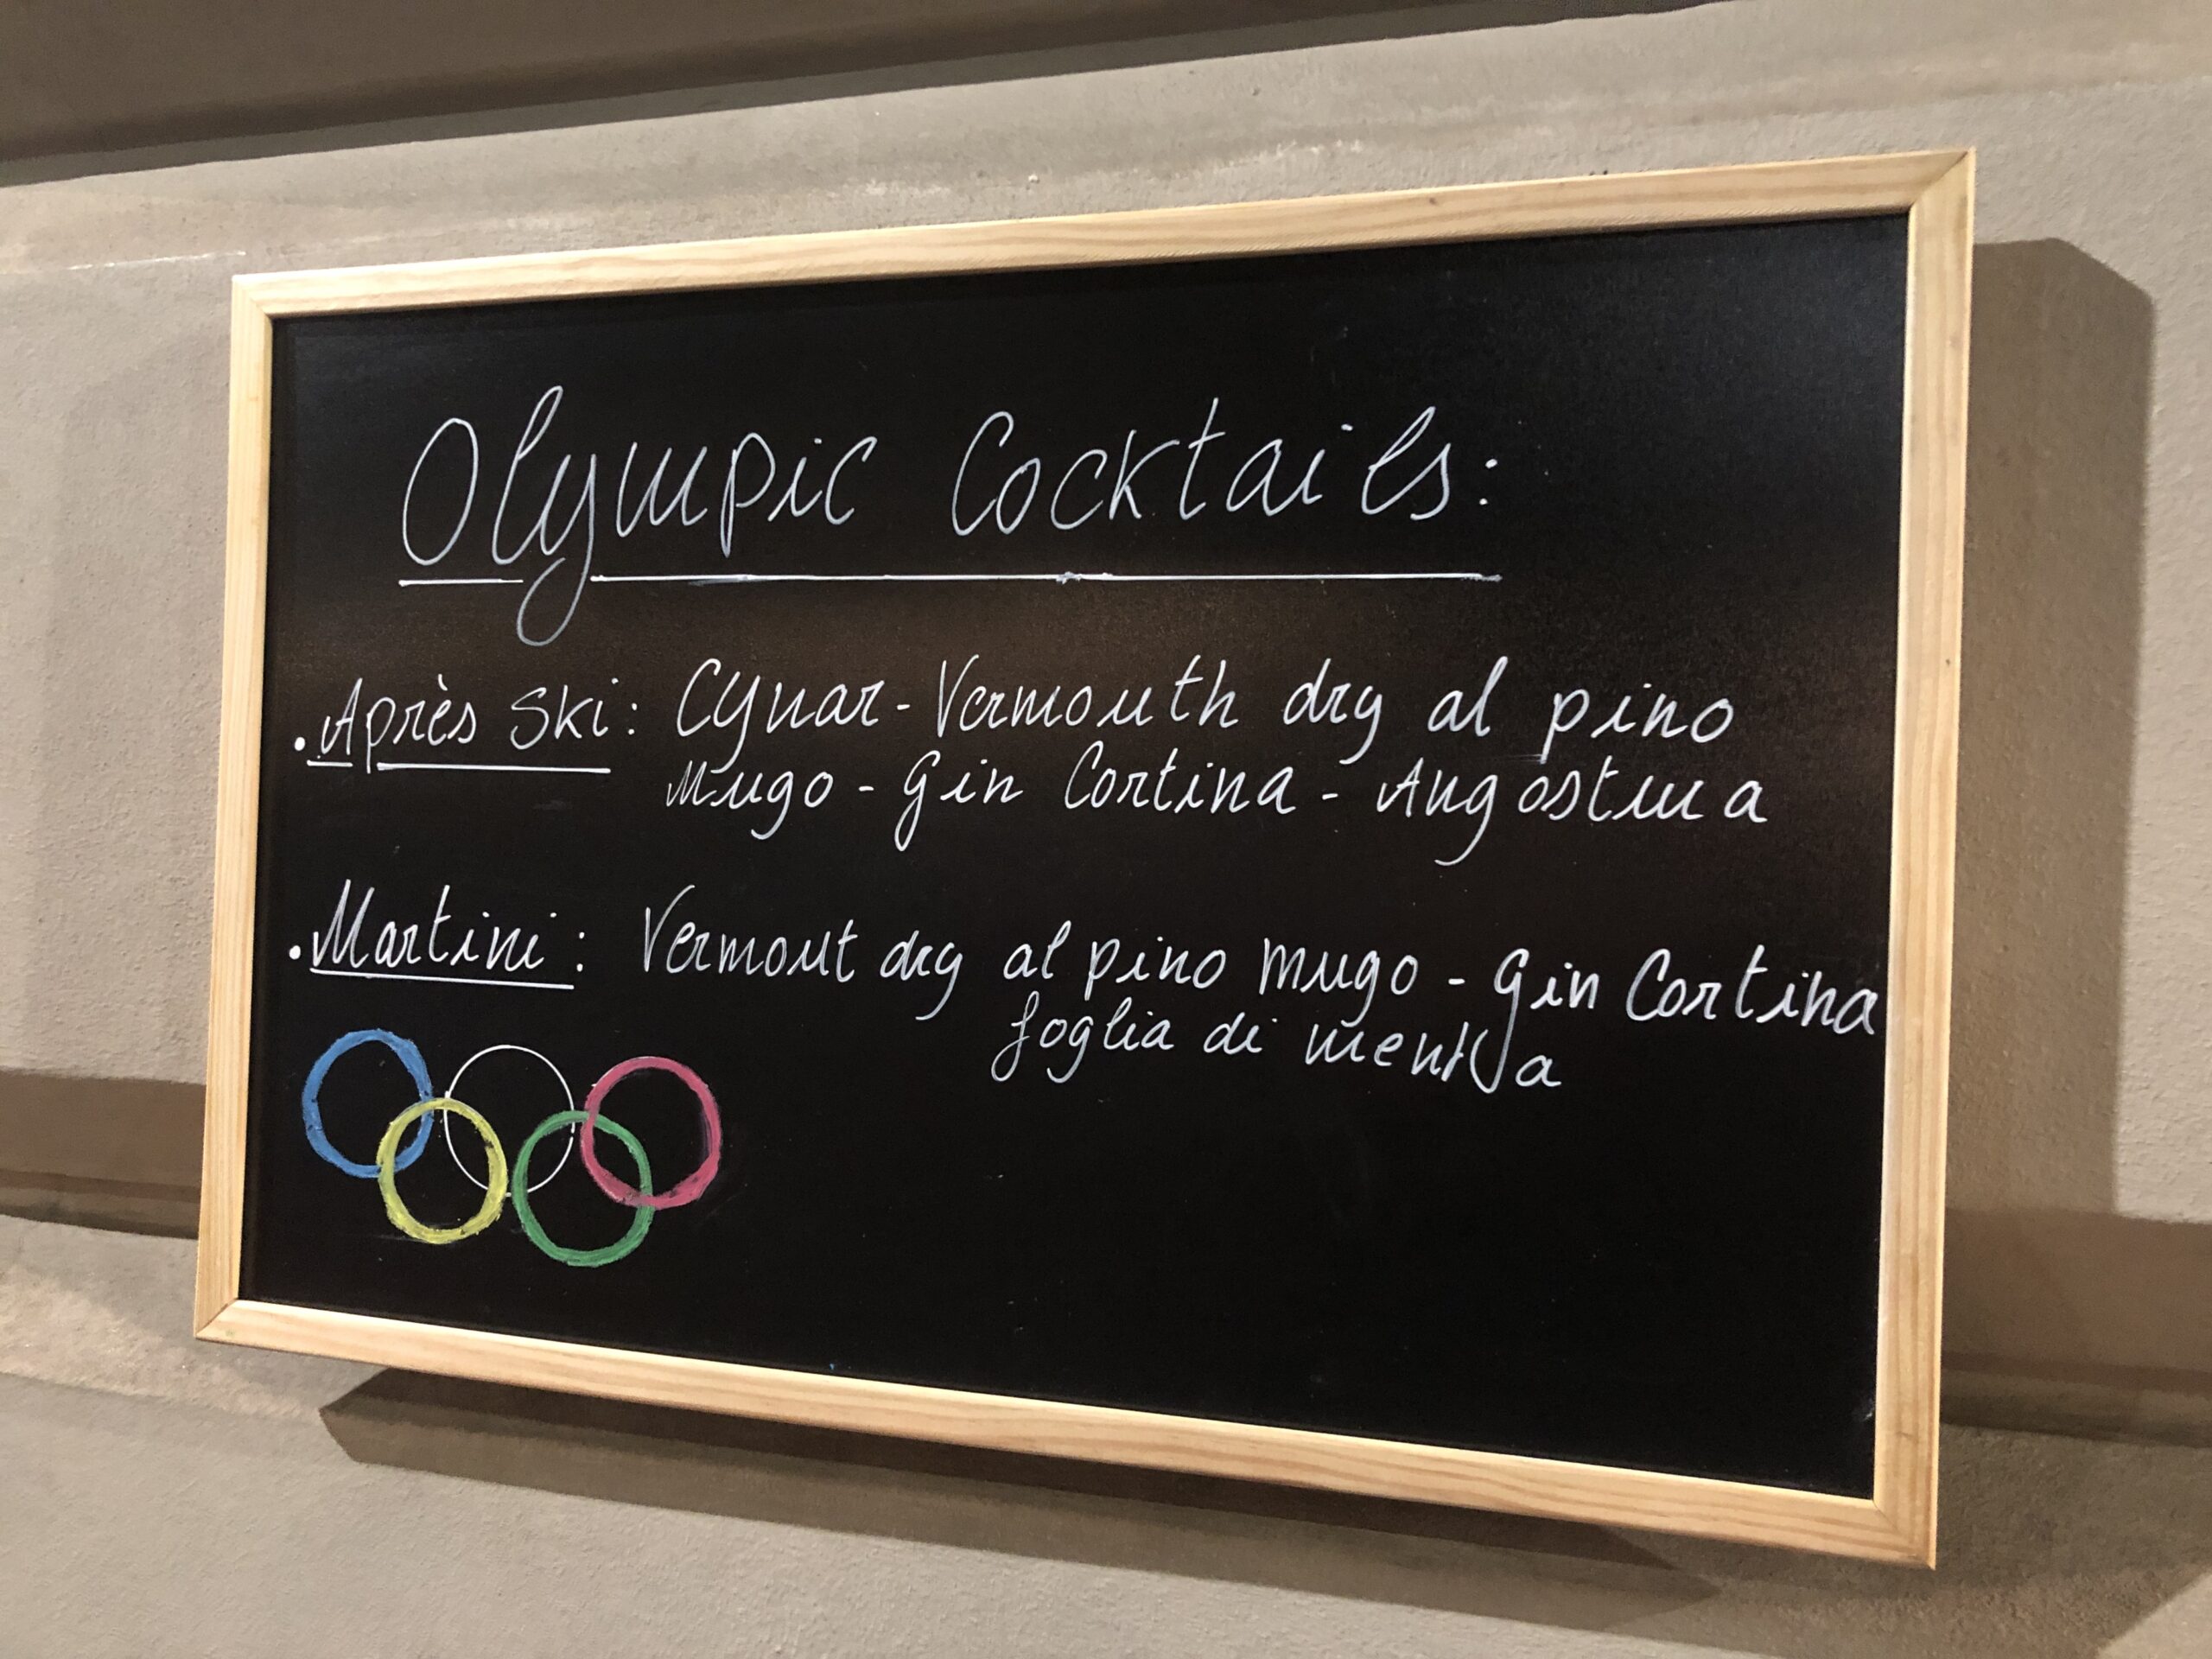 Olympic Cocktails:
. Après Ski: Cynar - Vermouth dry al pino
Mugo - Gin Cortina - Angostura
. Martini: Vermout dry al pino mugo - Gin Cortina
foglia di menta